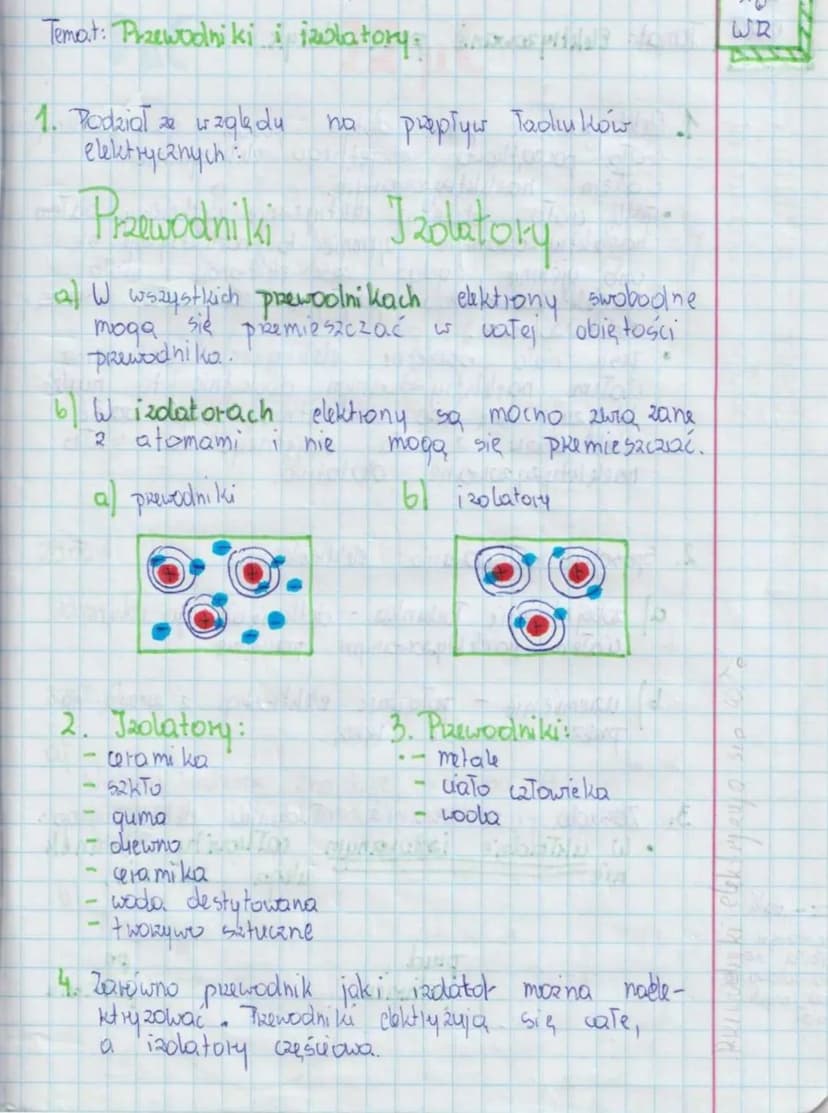 WR
Temat: Przewodniki i izolatory.
1. Podział ze względu na przepływ ładunków
elektrycznych:
Przewodniki Izolatory
a) W wszystkich przewodnikach elektrony swobodne
mogą się przemieszczać w całej objętości
przewodnika.
b) W izolatorach elektrony są mocno związane
z atomami i nie mogą się przemieszczać.
a) przewodniki b) izolatory
2. Izolatory: 3. Przewodniki:
- ceramika - metale
- szkło - ciało człowieka
- guma - woda
- drewno
- ceramika
- woda destylowana
- tworzywo sztuczne
4. Zarówno przewodnik jak i izolator można naele-
ktryzować. Przewodniki elektryzują się całe,
a izolatory częściowa.